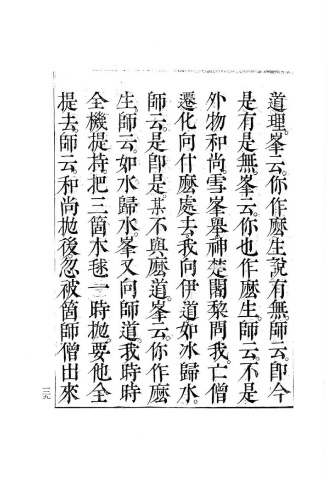 道理。峯云。你作麼生說有無。師云。卽今
是有是無。峯云。你也作麼生。師云。不是
外物和尚。雪峯舉神楚闍黎問我亡僧
遷化向什麼處去。我向伊道如冰歸水。
師云。是卽是某不與麼道。峯云。你作麼
生。師云。如水歸水。峯又向師道。我時時
全機提持。把三箇木毬一時拋。要他全
提去。師云。和尚拋後忽被箇師僧出來
一三九